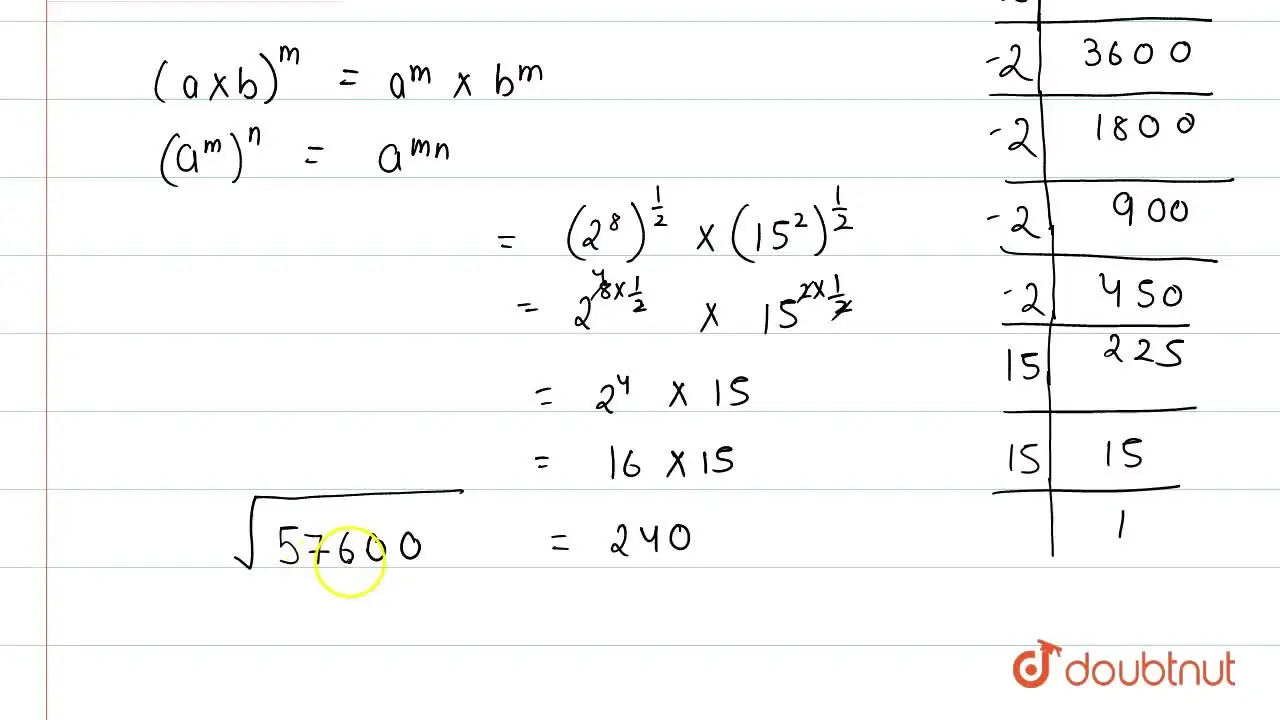 (a×b)^m = a^m × b^m
(a^m)^n = a^mn
= (2^8)^1/2 × (15^2)^1/2
= 2^8×1/2 × 15^2×1/2
4
= 2^4 × 15
= 16 × 15
√57600 = 240
-2 | 3600
-2 | 1800
-2 | 900
-2 | 450
15 | 225
15 | 15
1
doubtnut